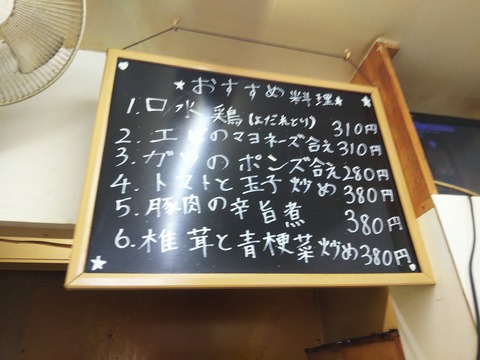 ★おすすめ料理★
1.口水鶏(よだれとり) 310円
2.エビのマヨネーズ合え 310円
3.ガツのポンズ合え 280円
4.トマトと玉子炒め 380円
5.豚肉の辛旨煮 380円
6.椎茸と青梗菜炒め 380円